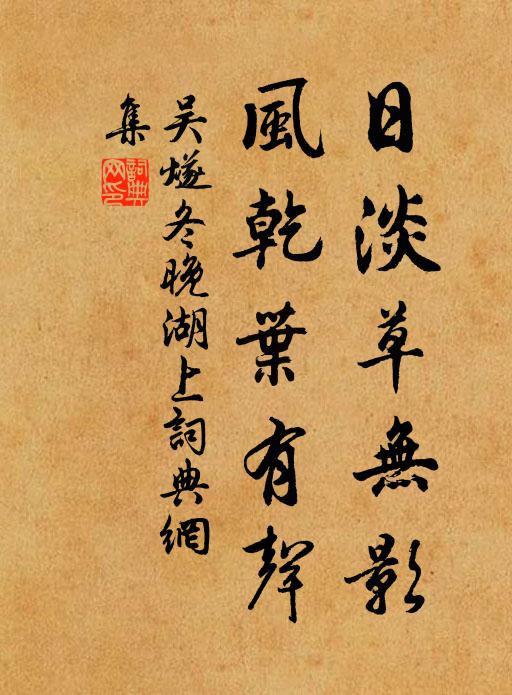 日淡草無影
風乾葉有聲
吴燧冬晚湖上詞典網
集
詞典網印